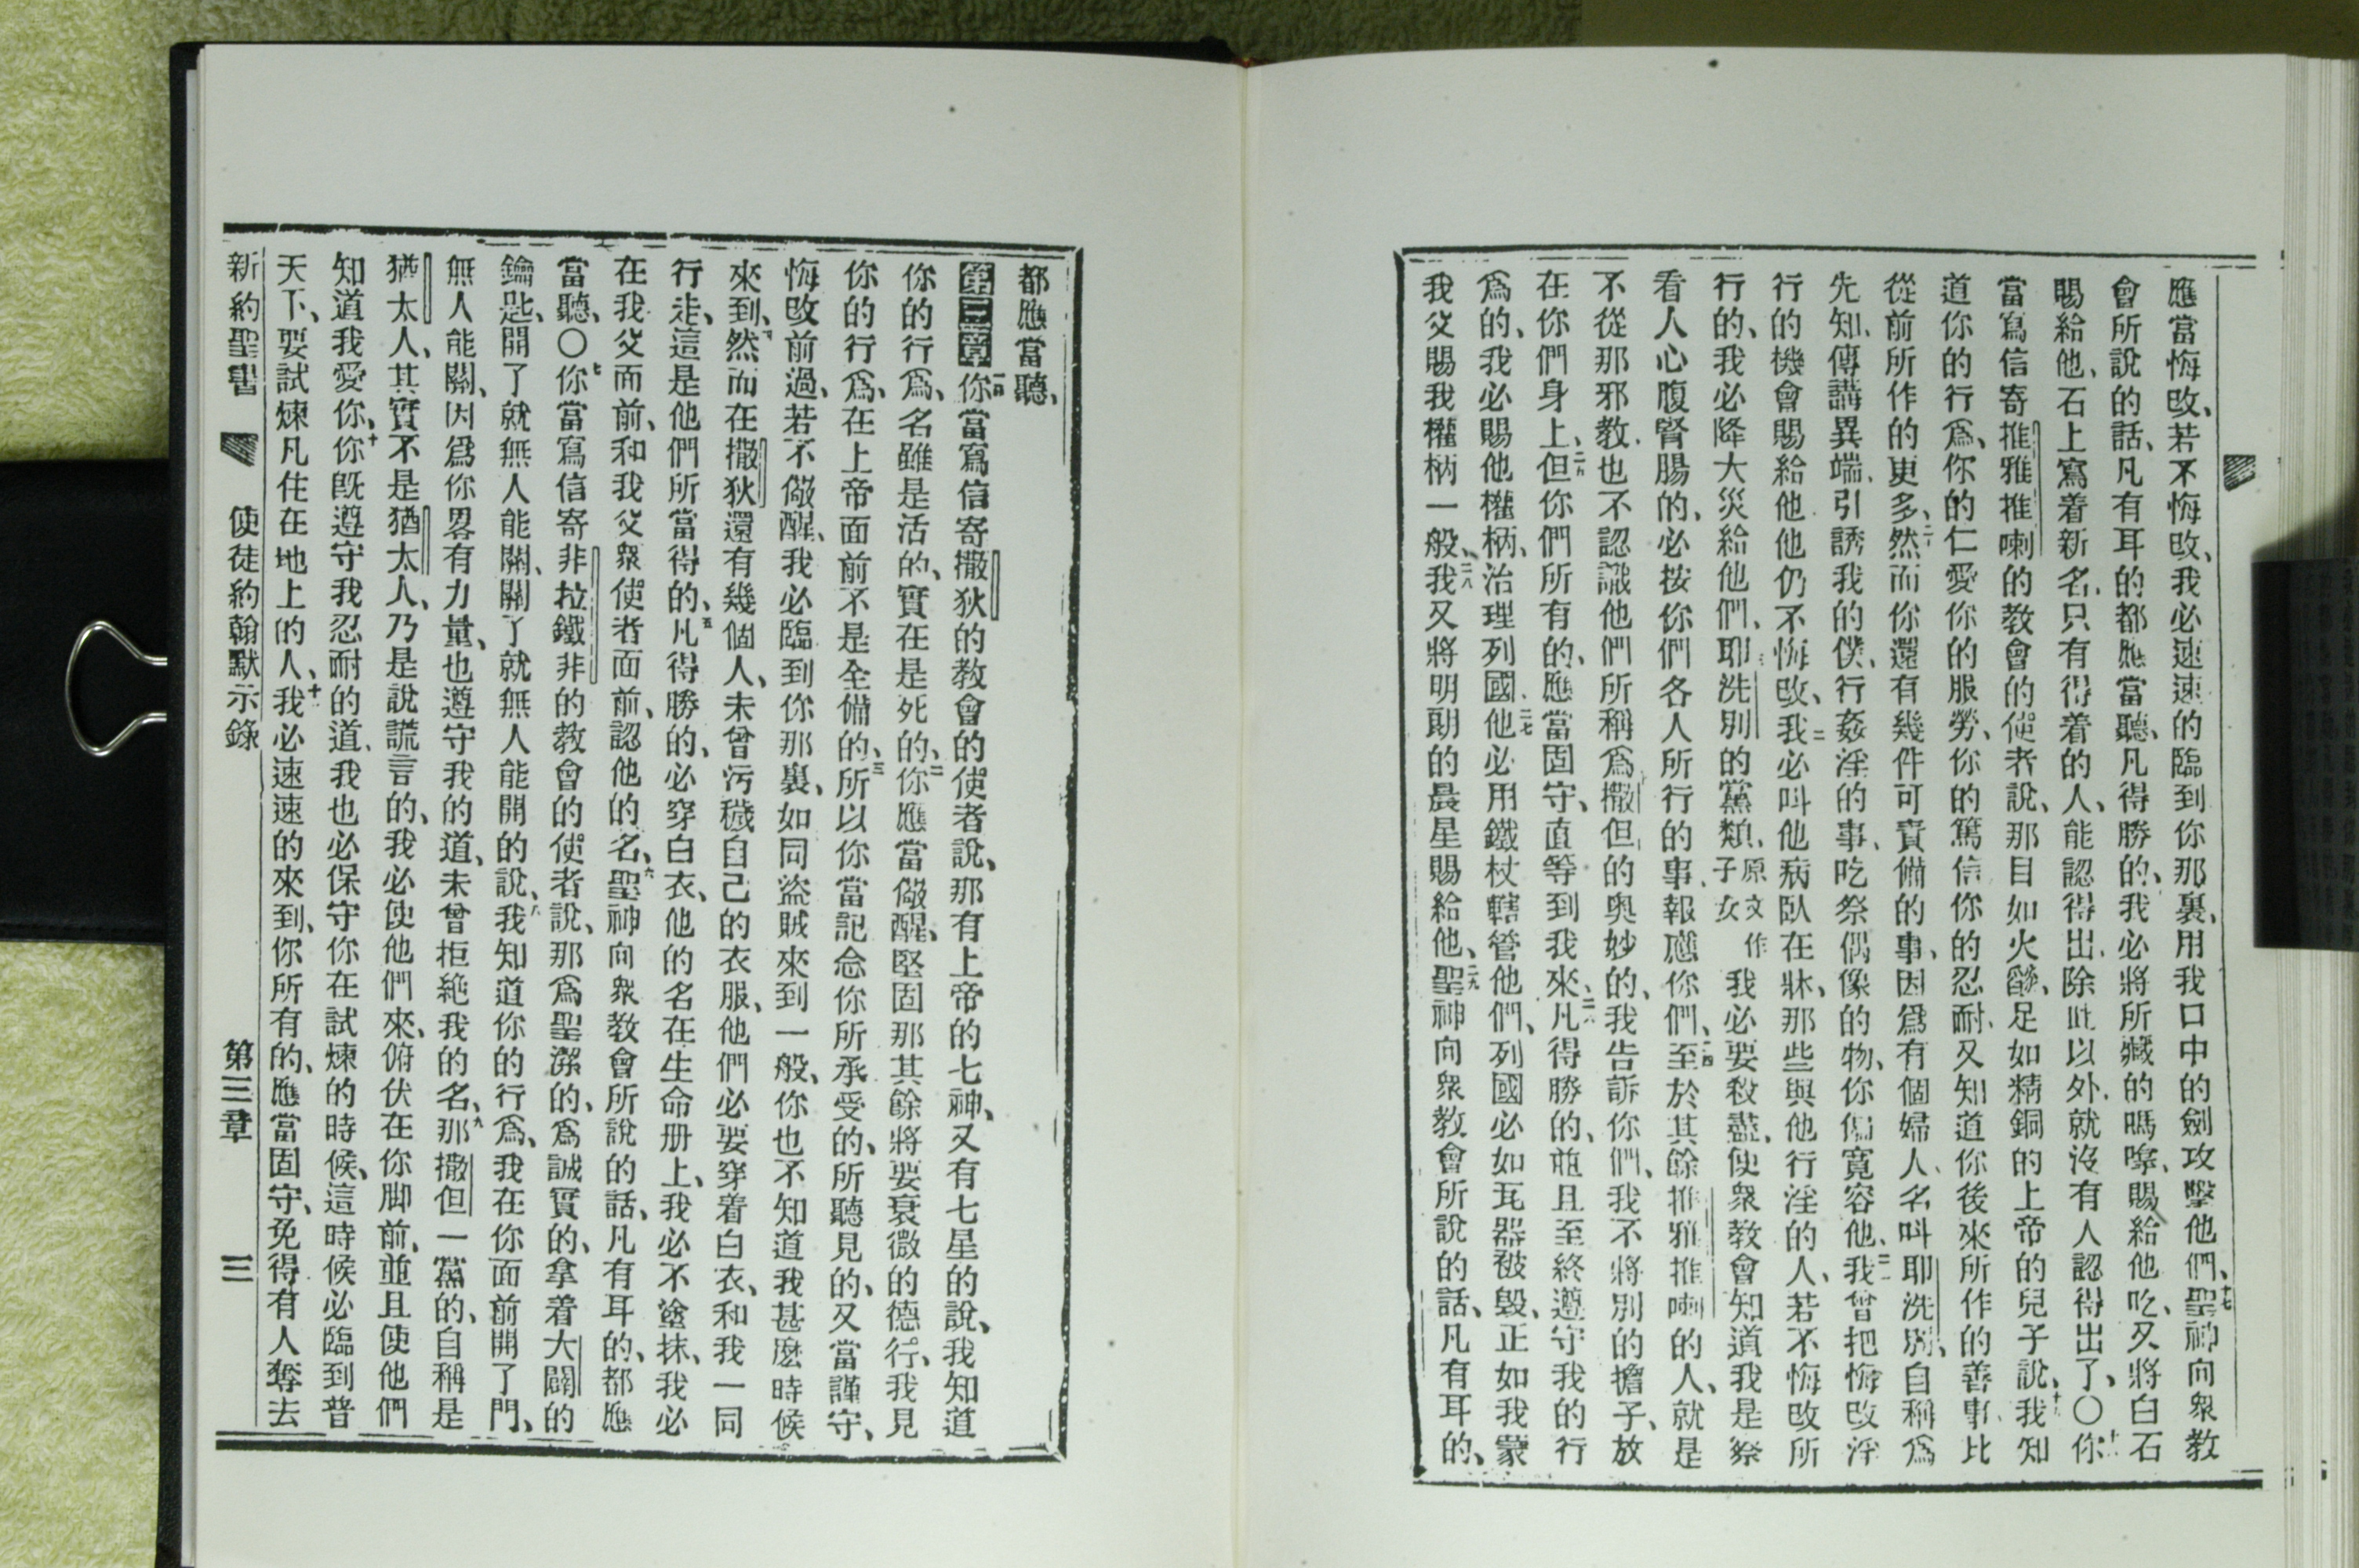 應當悔改、若不悔改、我必速速的臨到你那裏、用我口中的劍攻擊他們、十七聖神向衆教
會所說的話、凡有耳的都應當聽、凡得勝的、我必將所藏的嗎嗱、賜給他吃、又將白石
賜給他、石上寫着新名、只有得着的人、能認得出、除此以外、就沒有人認得出了、〇你
當寫信寄推雅推喇的教會的使者說、那目如火燄、足如精銅的上帝的兒子說、我知
道你的行爲、你的仁愛你的服勞、你的篤信你的忍耐、又知道你後來所作的善事、比
從前所作的更多、然而你還有幾件可責備的事、因爲有個婦人、名叫耶洗別、自稱爲
先知、傳講異端、引誘我的僕、行姦淫的事、吃祭偶像的物、你偏寬容他、我曾把悔改淫
行的機會賜給他他仍不悔改、我必叫他病臥在牀、那些與他行淫的人、若不悔改所
行的、我必降大災給他們、耶洗別的黨類、原文作子女我必要殺盡、使衆教會知道我是察
看人心腹腎腸的、必按你們各人所行的事、報應你們、至於其餘推雅推喇的人、就是
不從那邪教、也不認識他們所稱爲撒但的奧妙的、我告訴你們、我不將別的擔子、放
在你們身上、但你們所有的、應當固守、直等到我來、凡得勝的、並且至終遵守我的行
爲的、我必賜他權柄、治理列國、二七他必用鐵杖轄管他們、列國必如瓦器被毀、正如我蒙
我父賜我權柄一般、二八我又將明朗的晨星賜給他、二九聖神向衆教會所說的話、凡有耳的、
都應當聽、
第三章一你當寫信寄撒狄的教會的使者說、那有上帝的七神、又有七星的說、我知道
你的行爲、名雖是活的、實在是死的、二你應當儆醒、堅固那其餘將要衰微的德行、我見
你的行爲、在上帝面前不是全備的、三所以你當記念你所承受的、所聽見的、又當謹守、
悔改前過、若不儆醒、我必臨到你那裏、如同盜賊來到一般、你也不知道我甚麽時候
來到、然而在撒狄還有幾個人、未曾污穢自己的衣服、他們必要穿着白衣、和我一同
行走、這是他們所當得的、五凡得勝的、必穿白衣、他的名在生命册上、我必不塗抹、我必
在我父面前、和我父衆使者面前、認他的名、六聖神向衆教會所說的話、凡有耳的、都應
當聽、〇七你當寫信寄非拉鐵非的教會的使者說、那爲聖潔的、爲誠實的、拿着大闢的
鑰匙、開了就無人能關、關了就無人能開的說、八我知道你的行爲、我在你面前開了門、
無人能關、因爲你畧有力量、也遵守我的道、未曾拒絶我的名、九那撒但一黨的、自稱是
猶太人、其實不是猶太人、乃是說謊言的、我必使他們來、俯伏在你脚前、並且使他們
知道我愛你、十你旣遵守我忍耐的道、我也必保守你在試煉的時候、這時候必臨到普
天下、要試煉凡住在地上的人、十一我必速速的來到、你所有的、應當固守、免得有人奪去
新約聖書 使徒約翰默示錄 第三章 三